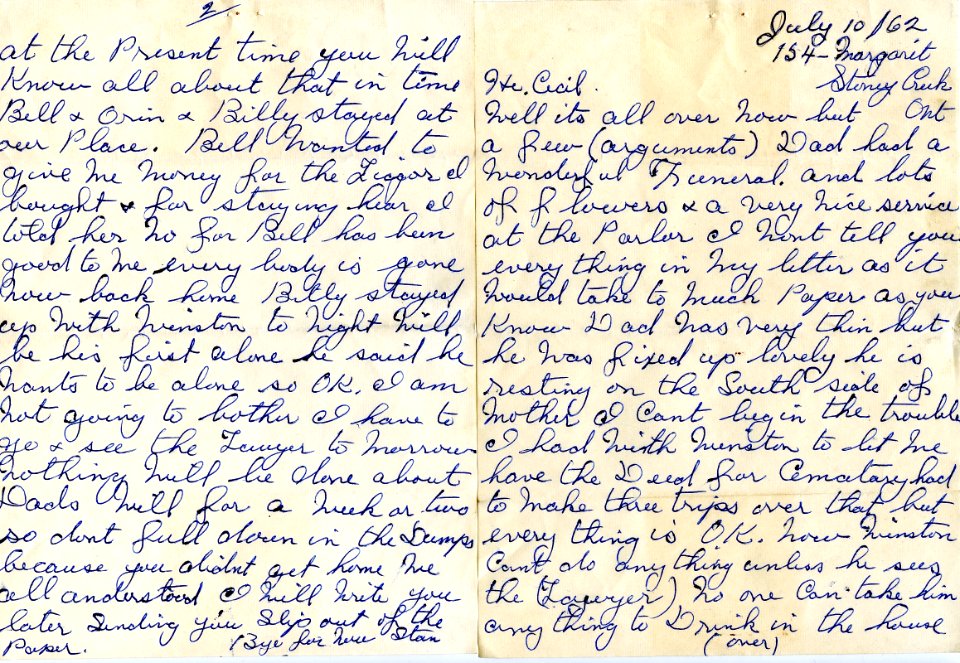 July 10/62
154-Margarit
Stoney Creek
Ont
He. Cecil.
Well its all over Now but
a few (arguments) Dad had a
Wonderful Funeral. and lots
of flowers & a very Nice service
at the Parlor I Wont tell you
every thing in My letter as it
Would take to Much Paper as you
Know Dad Was very thin but
he Was fixed up lovely he is
resting on the South side of
Mother I Cant begin the trouble
I had With Winston to let Me
have the Deed for Cematary had
to Make three trips over that but
every thing is O.K. Now Winston
Cant do any thing unless he sees
the (Lawyer) No one Can take him
any thing to Drink in the house
(over)
2
at the Present time you Will
Know all about that in time
Bell & Orin & Billy stayed at
our Place. Bell Wanted to
give Me Money for the Liggor I
bought & for staying hear I
told her No for Bell has been
good to Me every body is gone
Now back home Billy stayed
up With Winston to Night Will
be his first alone he said he
Wants to be alone so OK. I am
Not going to bother I have to
go & see the Lawyer to Morrow
Nothing Will be done about
Dads Will for a Week or two
so dont full down in the Dumps
because you didnt get home We
all understood I Will Write you
later Sending you Slip out of the
Paper. (Bye for Now Stan